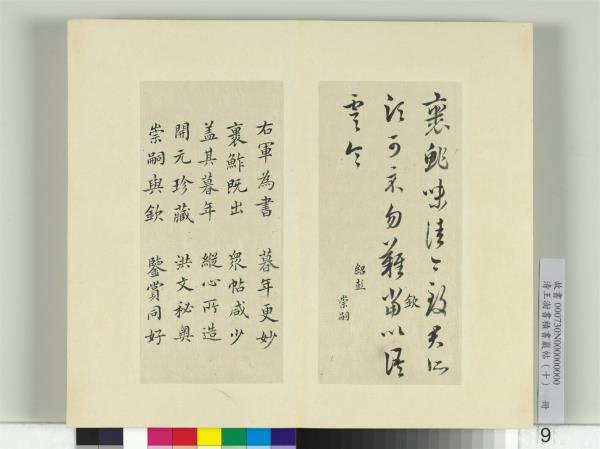 裹鮓味佳今致君所
須可示勿難當以語
虞令
欽
紹彭
崇嗣
右軍為書 暮年更妙
裹鮓既出 衆帖咸少
盖其暮年 縱心所造
開元珍藏 洪文秘奧
崇嗣與欽 鑒賞同好
故書000730N000000000
清王澍書積書巖帖(十) 冊
9